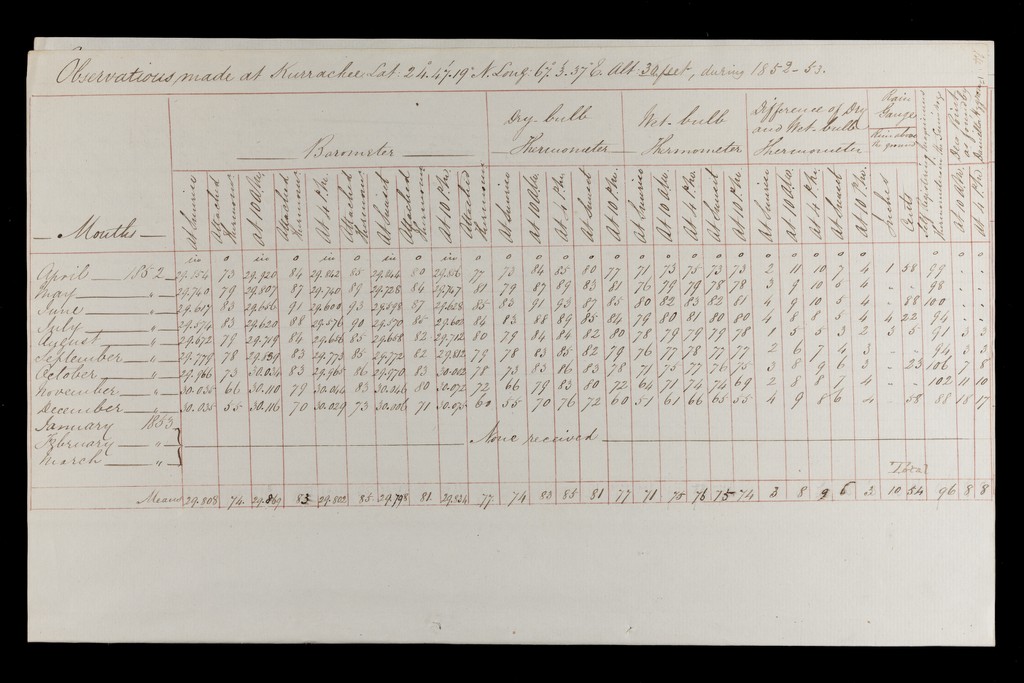 Observations, made at Kurrachee Lat: 24.47.19 N. Long: 67.3.37 E. Alt 30 feet, during 1852-53.
Months
Barometer
Dry-bulb Thermometer
Wet-bulb Thermometer
Difference of Dry and Wet-bulb Thermometer
Rain Gauge
At Sunrise Attached Thermom. At 10 A.M. Attached Thermom. At 4 P.M. Attached Thermom. At Sunset Attached Thermom. At 10 P.M. Attached Thermom. At Sunrise At 10 A.M. At 4 P.M. At Sunset At 10 P.M. At Sunrise At 10 A.M. At 4 P.M. At Sunset At 10 P.M. At Sunrise At 10 A.M. At 4 P.M. At Sunset At 10 P.M. Inches Cents At 10 A.M. At 4 P.M.
in o in o in o in o in o o o o o o o o o o o o o o o o
April 1852 73 29.920 84 29.842 85 80 77 73 84 85 80 77 71 73 75 73 73 2 11 10 7 4 1 58 99
May " 29.740 79 29.807 87 29.740 89 29.728 84 29.747 81 79 87 89 83 81 76 79 79 78 78 3 9 10 5 4 - - 98
June " 29.617 83 29.656 91 29.600 93 29.598 87 29.628 85 83 91 93 87 85 80 82 83 82 81 4 9 10 5 4 - 88 100
July " 29.574 83 29.620 88 29.576 90 29.570 85 84 83 88 89 85 84 79 80 81 80 80 4 8 8 5 4 4 22 94
August " 29.672 79 29.719 84 29.656 85 29.658 82 29.712 80 79 84 84 82 80 78 79 79 79 78 1 5 5 3 2 3 5 91 3 3
September " 29.779 78 83 29.773 85 29.772 82 29.812 79 78 83 85 82 79 76 77 78 77 77 2 6 7 4 3 - - 94 3 3
October " 29.866 73 30.034 83 29.965 86 29.970 83 30.012 78 73 83 86 83 78 71 75 77 76 75 3 8 9 6 3 - 23 106 7 8
November " 30.035 66 30.110 79 30.044 83 30.046 80 30.072 72 66 79 83 80 72 64 71 74 74 69 2 8 8 7 4 - - 102 11 10
December " 30.035 55 30.116 70 30.029 73 71 30.075 60 55 70 76 72 60 51 61 66 65 55 4 9 8 6 4 - 58 88 18 17
January 1853
February " None received
March "
Total
Means 29.808 74 29.869 83 29.802 85 29.798 81 29.834 77 74 83 85 81 77 71 75 76 75 74 3 8 9 6 3 10 54 96 8 8